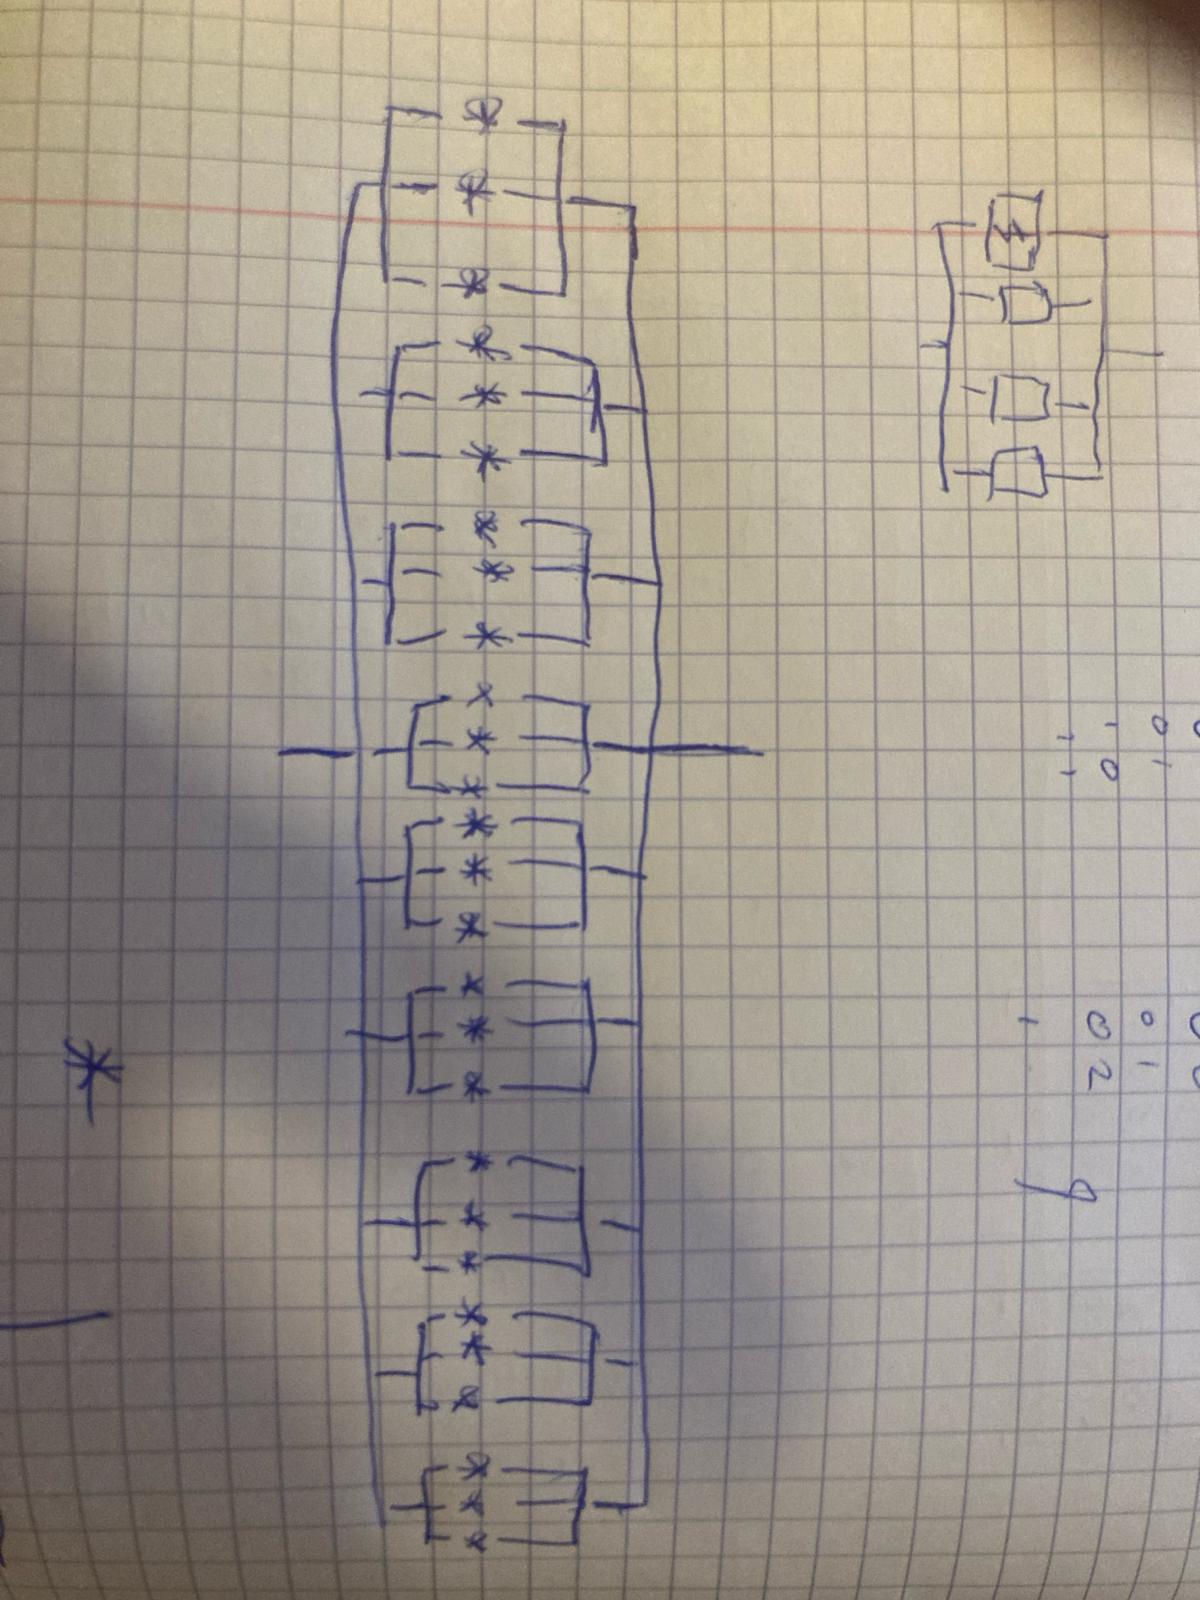 0 1
1 0
1 1
0 0
0 1
0 2
1
9